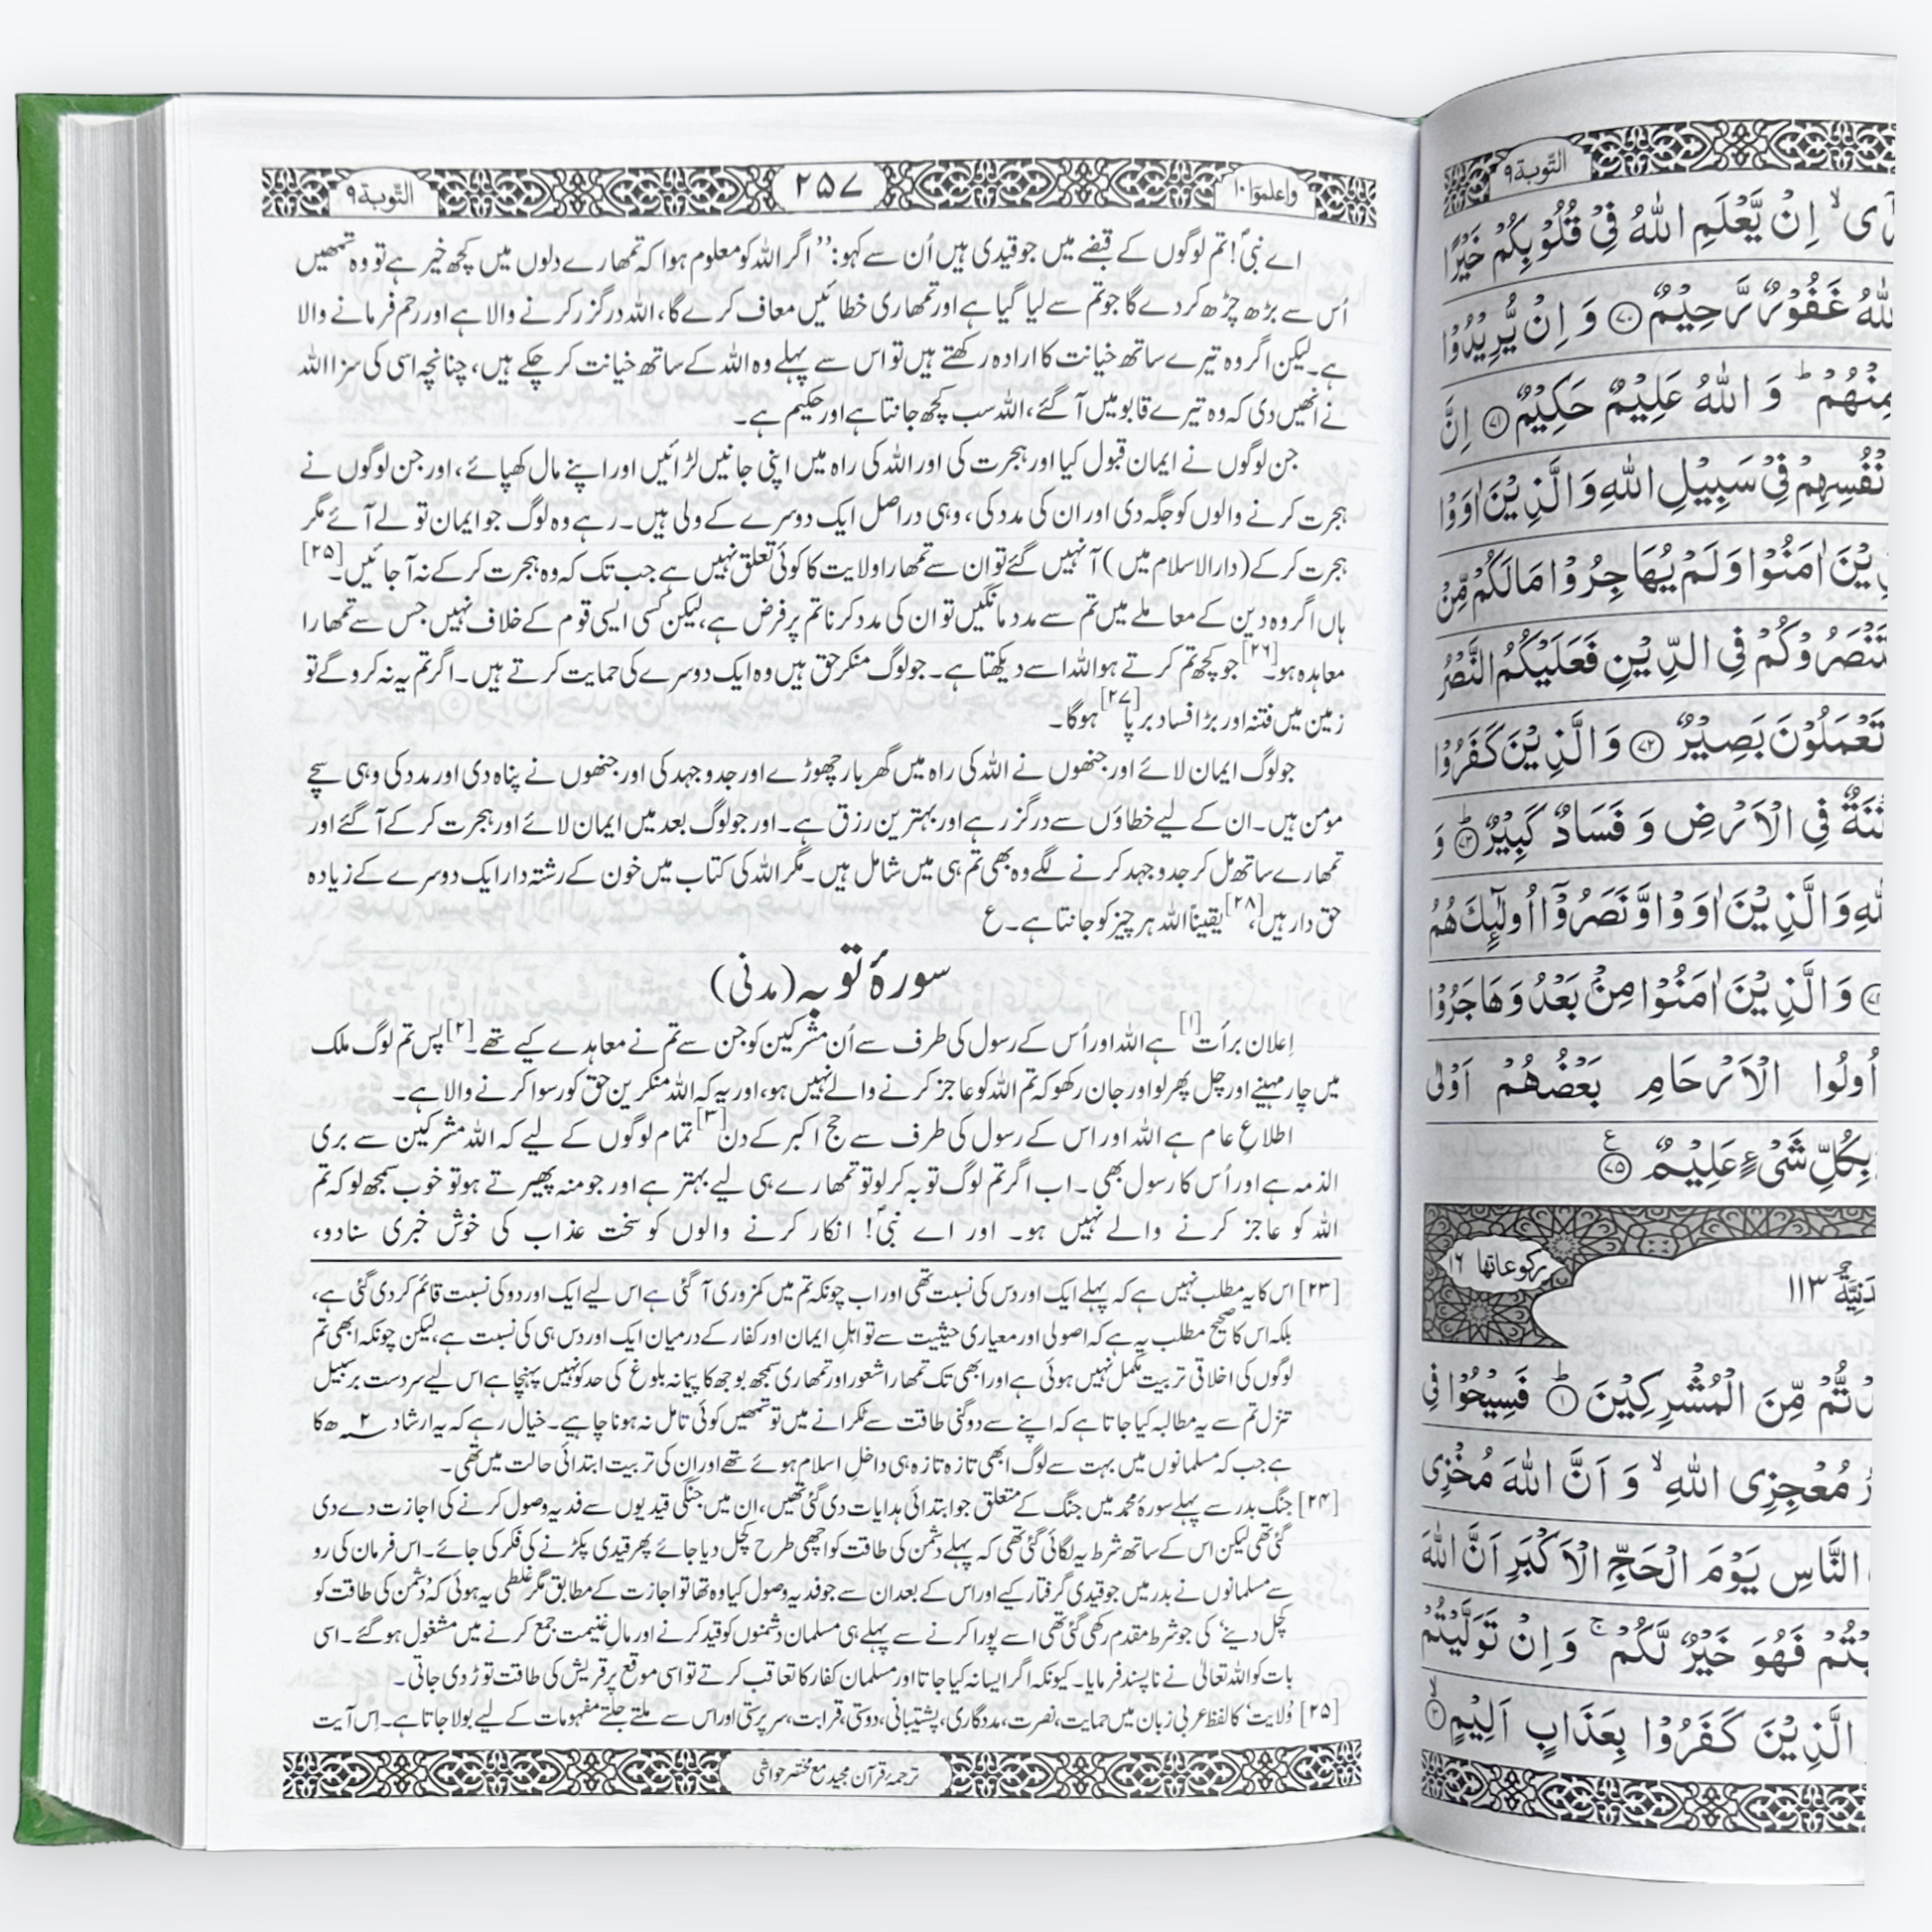 واعلموٓا ۱۰
۲۵۷
التّوبة ۹
اے نبیؐ! تم لوگوں کے قبضے میں جو قیدی ہیں اُن سے کہو: ’’اگر اللہ کو معلوم ہوا کہ تمھارے دلوں میں کچھ خیر ہے تو وہ تمھیں
اُس سے بڑھ چڑھ کر دے گا جو تم سے لیا گیا ہے اور تمھاری خطائیں معاف کرے گا، اللہ درگزر کرنے والا ہے اور رحم فرمانے والا
ہے۔ لیکن اگر وہ تیرے ساتھ خیانت کا ارادہ رکھتے ہیں تو اس سے پہلے وہ اللہ کے ساتھ خیانت کر چکے ہیں، چنانچہ اسی کی سزا اللہ
نے انھیں دی کہ وہ تیرے قابو میں آ گئے، اللہ سب کچھ جانتا ہے اور حکیم ہے۔
جن لوگوں نے ایمان قبول کیا اور ہجرت کی اور اللہ کی راہ میں اپنی جانیں لڑائیں اور اپنے مال کھپائے، اور جن لوگوں نے
ہجرت کرنے والوں کو جگہ دی اور ان کی مدد کی، وہی دراصل ایک دوسرے کے ولی ہیں۔ رہے وہ لوگ جو ایمان تو لے آئے مگر
ہجرت کر کے (دارالاسلام میں) آ نہیں گئے تو ان سے تمھارا ولایت کا کوئی تعلق نہیں ہے جب تک کہ وہ ہجرت کر کے نہ آ جائیں۔[۲۵]
ہاں اگر وہ دین کے معاملے میں تم سے مدد مانگیں تو ان کی مدد کرنا تم پر فرض ہے، لیکن کسی ایسی قوم کے خلاف نہیں جس سے تمھارا
معاہدہ ہو۔[۲۶] جو کچھ تم کرتے ہو اللہ اسے دیکھتا ہے۔ جو لوگ منکرِ حق ہیں وہ ایک دوسرے کی حمایت کرتے ہیں۔ اگر تم یہ نہ کرو گے تو
زمین میں فتنہ اور بڑا فساد برپا[۲۷] ہوگا۔
جو لوگ ایمان لائے اور جنھوں نے اللہ کی راہ میں گھر بار چھوڑے اور جدوجہد کی اور جنھوں نے پناہ دی اور مدد کی وہی سچے
مومن ہیں۔ ان کے لیے خطاؤں سے درگزر ہے اور بہترین رزق ہے۔ اور جو لوگ بعد میں ایمان لائے اور ہجرت کر کے آ گئے اور
تمھارے ساتھ مل کر جدوجہد کرنے لگے وہ بھی تم ہی میں شامل ہیں۔ مگر اللہ کی کتاب میں خون کے رشتہ دار ایک دوسرے کے زیادہ
حق دار ہیں،[۲۸] یقیناً اللہ ہر چیز کو جانتا ہے۔ ع
سورۂ توبہ (مدنی)
اِعلان برأت[۱] ہے اللہ اور اُس کے رسول کی طرف سے اُن مشرکین کو جن سے تم نے معاہدے کیے تھے۔[۲] پس تم لوگ ملک
میں چار مہینے اور چل پھر لو اور جان رکھو کہ تم اللہ کو عاجز کرنے والے نہیں ہو، اور یہ کہ اللہ منکرین حق کو رسوا کرنے والا ہے۔
اطلاعِ عام ہے اللہ اور اس کے رسول کی طرف سے حج اکبر کے دن[۳] تمام لوگوں کے لیے کہ اللہ مشرکین سے بری
الذمہ ہے اور اُس کا رسول بھی۔ اب اگر تم لوگ توبہ کر لو تو تمھارے ہی لیے بہتر ہے اور جو منہ پھیرتے ہو تو خوب سمجھ لو کہ تم
اللہ کو عاجز کرنے والے نہیں ہو۔ اور اے نبیؐ! انکار کرنے والوں کو سخت عذاب کی خوش خبری سنا دو،
[۲۳] اس کا یہ مطلب نہیں ہے کہ پہلے ایک اور دس کی نسبت تھی اور اب چونکہ تم میں کمزوری آ گئی ہے اس لیے ایک اور دو کی نسبت قائم کر دی گئی ہے،
بلکہ اس کا صحیح مطلب یہ ہے کہ اصولی اور معیاری حیثیت سے تو اہلِ ایمان اور کفار کے درمیان ایک اور دس ہی کی نسبت ہے، لیکن چونکہ ابھی تم
لوگوں کی اخلاقی تربیت مکمل نہیں ہوئی ہے اور ابھی تک تمھارا شعور اور تمھاری سمجھ بوجھ کا پیمانہ بلوغ کی حد کو نہیں پہنچا ہے اس لیے سردست برسبیل
تنزل تم سے یہ مطالبہ کیا جاتا ہے کہ اپنے سے دوگنی طاقت سے ٹکرانے میں تو تمھیں کوئی تامل نہ ہونا چاہیے۔ خیال رہے کہ یہ ارشاد ۲ھ کا
ہے جب کہ مسلمانوں میں بہت سے لوگ ابھی تازہ تازہ ہی داخلِ اسلام ہوئے تھے اور ان کی تربیت ابتدائی حالت میں تھی۔
[۲۴] جنگ بدر سے پہلے سورۂ محمد میں جنگ کے متعلق جو ابتدائی ہدایات دی گئی تھیں، ان میں جنگی قیدیوں سے فدیہ وصول کرنے کی اجازت دے دی
گئی تھی لیکن اس کے ساتھ شرط یہ لگائی گئی تھی کہ پہلے دشمن کی طاقت کو اچھی طرح کچل دیا جائے پھر قیدی پکڑنے کی فکر کی جائے۔ اس فرمان کی رو
سے مسلمانوں نے بدر میں جو قیدی گرفتار کیے اور اس کے بعد ان سے جو فدیہ وصول کیا وہ تھا تو اجازت کے مطابق مگر غلطی یہ ہوئی کہ ’دشمن کی طاقت کو
کچل دینے‘ کی جو شرط مقدم رکھی گئی تھی اسے پورا کرنے سے پہلے ہی مسلمان دشمنوں کو قید کرنے اور مالِ غنیمت جمع کرنے میں مشغول ہو گئے۔ اسی
بات کو اللہ تعالیٰ نے ناپسند فرمایا۔ کیونکہ اگر ایسا نہ کیا جاتا اور مسلمان کفار کا تعاقب کرتے تو اسی موقع پر قریش کی طاقت توڑ دی جاتی۔
[۲۵] ’ولایت‘ کا لفظ عربی زبان میں حمایت، نصرت، مددگاری، پشتیبانی، دوستی، قرابت، سرپرستی اور اس سے ملتے جلتے مفہومات کے لیے بولا جاتا ہے۔ اِس آیت
ترجمۂ قرآن مجید مع مختصر حواشی
التّوبة ۹
اِنْ يَّعْلَمِ اللّٰهُ فِيْ قُلُوْبِكُمْ خَيْرًا
غَفُوْرٌ رَّحِيْمٌ ﴿۷۰﴾ وَ اِنْ يُّرِيْدُوْا
مِنْهُمْ ؕ وَ اللّٰهُ عَلِيْمٌ حَكِيْمٌ ﴿۷۱﴾ اِنَّ
فِيْ سَبِيْلِ اللّٰهِ وَ الَّذِيْنَ اٰوَوْا
اٰمَنُوْا وَ لَمْ يُهَاجِرُوْا مَا لَكُمْ مِّنْ
فِي الدِّيْنِ فَعَلَيْكُمُ النَّصْرُ
تَعْمَلُوْنَ بَصِيْرٌ ﴿۷۲﴾ وَ الَّذِيْنَ كَفَرُوْا
فِي الْاَرْضِ وَ فَسَادٌ كَبِيْرٌ ﴿۷۳﴾ وَ
وَ الَّذِيْنَ اٰوَوْا وَّ نَصَرُوْۤا اُولٰٓئِكَ هُمُ
وَ الَّذِيْنَ اٰمَنُوْا مِنْۢ بَعْدُ وَ هَاجَرُوْا
اُولُوا الْاَرْحَامِ بَعْضُهُمْ اَوْلٰى
بِكُلِّ شَيْءٍ عَلِيْمٌ ﴿۷۵﴾ ع
۱۱۳ ركوعاتها ۱۶
مِّنَ الْمُشْرِكِيْنَ ﴿۱﴾ فَسِيْحُوْا فِي
مُعْجِزِي اللّٰهِ ۙ وَ اَنَّ اللّٰهَ مُخْزِي
النَّاسِ يَوْمَ الْحَجِّ الْاَكْبَرِ اَنَّ اللّٰهَ
فَهُوَ خَيْرٌ لَّكُمْ ۚ وَ اِنْ تَوَلَّيْتُمْ
الَّذِيْنَ كَفَرُوْا بِعَذَابٍ اَلِيْمٍ ﴿۳﴾